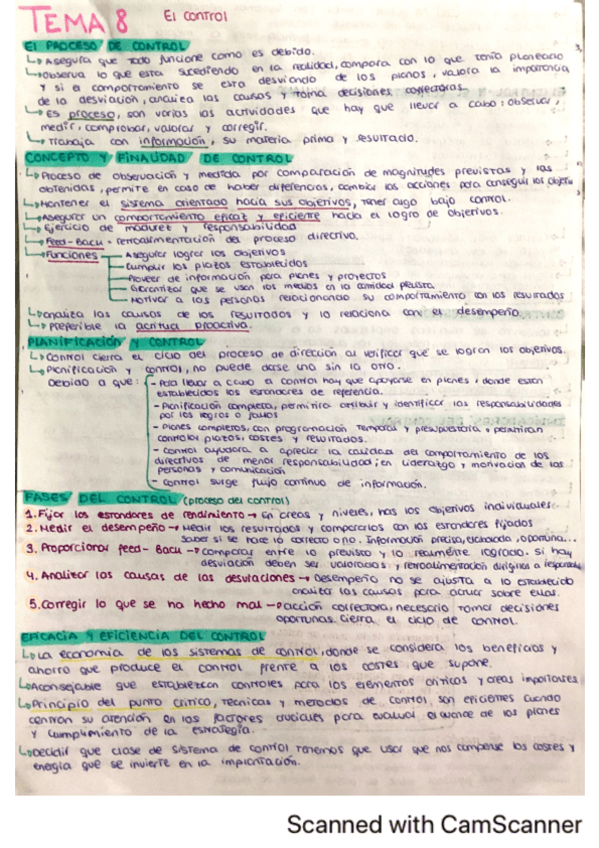 TEMA 8 El control
El PROCESO DE CONTROL
↳ Asegura que todo funcione como es debido.
↳ Observa lo que esta sucediendo en la realidad, compara con lo que tenía planeado
y si el comportamiento se esta desviando de los planos, valora la importancia
de la desviación, analiza las causas y toma decisiones correctoras.
↳ Es proceso, son varias las actividades que hay que llevar a cabo: observar,
medir, comprobar, valorar y corregir.
↳ Trabaja con información, su materia prima y resultado.
CONCEPTO Y FINALIDAD DE CONTROL
↳ Proceso de observación y medida por comparación de magnitudes previstas y las
obtenidas, permite en caso de haber diferencias, cambiar las acciones para conseguir los
↳ Mantener el sistema orientado hacia sus objetivos, tener algo bajo control.
↳ Asegurar un comportamiento eficaz y eficiente hacia el logro de objetivos.
↳ Ejercicio de madurez y responsabilidad
↳ Feed-Back = retroalimentación del proceso directivo.
↳ Funciones
Asegurar lograr los objetivos
Cumplir los plazos establecidos
Proveer de información para planes y proyectos
Garantizar que se usan los medios en la cantidad prevista.
Motivar a las personas relacionando su comportamiento con los resultados
↳ analiza las causas de los resultados y lo relaciona con el desempeño.
↳ Preferible la actitud proactiva.
PLANIFICACIÓN Y CONTROL
↳ Control cierra el ciclo del proceso de dirección al verificar que se logran los objetivos.
↳ Planificación y control, no puede darse uno sin lo otro.
Debido a que:
- Para llevar a cabo el control hay que apoyarse en planes, donde estén
establecidos los estandares de referencia.
- Planificación completa, permitirá atribuir y identificar las responsabilidades
por los logros o fallos
- Planes completos, con programación temporal y presupuestaria, permitirán
controlar plazos, costes y resultados.
- Control ayudará a apreciar la calidad del comportamiento de los
directivos de menor responsabilidad, en liderazgo y motivación de las
personas y comunicación
- Control surge flujo continuo de información.
FASES DEL CONTROL (proceso del control)
1. Fijar los estandares de rendimiento → En areas y niveles, has los objetivos individuales
2. Medir el desempeño → Medir los resultados y compararlos con los estandares fijados
Saber si se hace lo correcto o no. Información precisa, elaborada, oportuna...
3. Proporcionar feed-Back → comparar entre lo previsto y lo realmente logrado. Si hay
desviación deben ser valoradas y retroalimentación dirigida a
4. Analizar las causas de las desviaciones → Desempeño no se ajusta a lo establecido
analizar las causas para actuar sobre ellas.
5. Corregir lo que se ha hecho mal → acción correctora, necesario tomar decisiones
oportunas. Cierra el ciclo de control.
EFICACIA Y EFICIENCIA DEL CONTROL
↳ La economía de los sistemas de control, donde se considera los beneficios y
ahorro que produce el control frente a los costes que supone.
↳ Aconsejable que establezcan controles para los elementos críticos y areas importantes
↳ Principio del punto crítico, técnicas y metodos de control, son eficientes cuando
centran su atención en los factores cruciales para evaluar el avance de los planes
y cumplimiento de la estrategia.
↳ Decidir que clase de sistema de control tenemos que usar que nos compense los costes y
energía que se invierte en la implantación.
Scanned with CamScanner